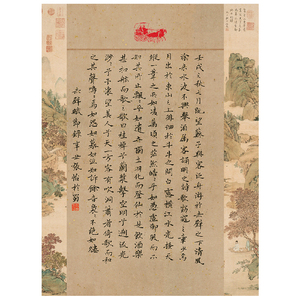 壬戌之秋七月既望蘇子與客泛舟游於赤壁之下清風
徐來水波不興舉酒屬客誦明月之詩歌窈窕之章少焉
月出於東山之上徘徊於斗牛之間白露橫江水光接天
縱一葦之所如凌萬頃之茫然浩浩乎如憑虛御風而不
知其所止飄飄乎如遺世獨立羽化而登仙於是飲酒樂
甚扣舷而歌之歌曰桂棹兮蘭槳擊空明兮溯流光
渺渺兮予懷望美人兮天一方客有吹洞簫者倚歌而和
之其聲嗚嗚然如怨如慕如泣如訴餘音裊裊不絕如縷
赤壁賦節錄辛丑張